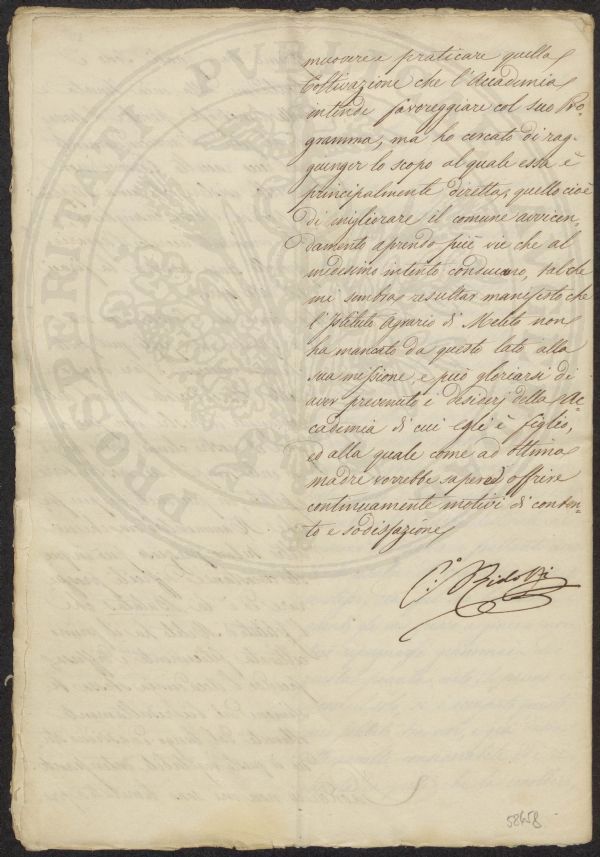 muovere a praticare quella
Coltivazione che l'Accademia
intende favoreggiare col suo Pro-
gramma, ma ho cercato di rag-
giunger lo scopo al quale essa è
principalmente diretta, quello cioè
di migliorare il comune avvicen-
damento aprendo più vie che al
medesimo intento conducano, tal che
mi sembra resultar manifesto che
l'Istituto Agrario di Meleto non
ha mancato da questo lato alla
sua missione, e può gloriarsi di
aver prevenuto i desiderj della Ac-
cademia di cui egli è figlio,
ed alla quale come ad ottima
madre vorrebbe sapere offrire
continuamente motivi di conten-
to e sodisfazione
C. Ridolfi
PROSPERITATI PUBL